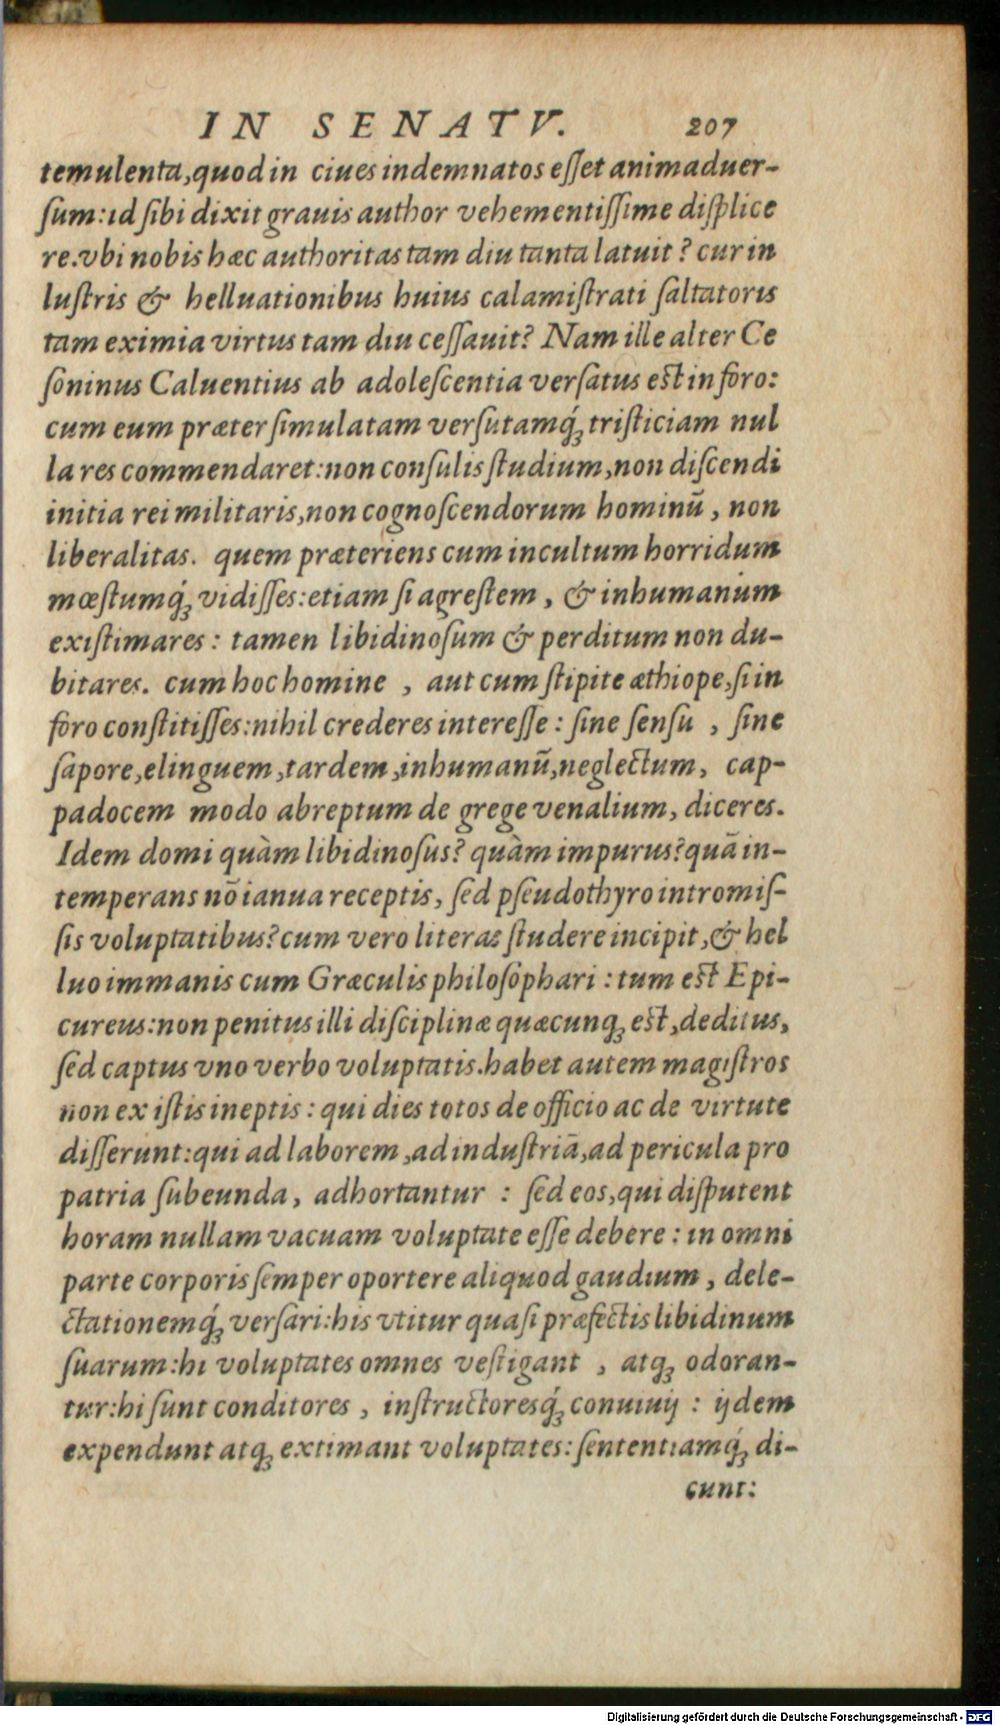 IN SENATV. 207
temulenta,quod in ciues indemnatos eſſet animaduer-
ſum:id ſibi dixit grauis author vehementiſſime diſplice
re.vbi nobis hæc authoritas tam diu tanta latuit? cur in
luſtris & helluationibus huius calamiſtrati ſaltatoris
tam eximia virtus tam diu ceſſauit? Nam ille alter Ce
ſoninus Caluentius ab adoleſcentia verſatus eſt in foro:
cum eum præter ſimulatam verſutamq́; triſticiam nul
la res commendaret:non conſulis ſtudium,non diſcendi
initia rei militaris,non cognoſcendorum hominũ, non
liberalitas. quem præteriens cum incultum horridum
mœſtumq́; vidiſſes:etiam ſi agreſtem, & inhumanium
exiſtimares: tamen libidinoſum & perditum non du-
bitares. cum hoc homine , aut cum ſtipite æthiope,ſi in
foro conſtitiſſes:nihil crederes intereſſe: ſine ſenſu , ſine
ſapore,elinguem,tardem,inhumanũ,neglectum, cap-
padocem modo abreptum de grege venalium, diceres.
Idem domi quàm libidinoſus? quàm impurus?quã in-
temperans nõ ianua receptis, ſed pſeudothyro intromiſ-
ſis voluptatibus?cum vero literas ſtudere incipit,& hel
luo immanis cum Græculis philoſophari: tum eſt Epi-
cureus:non penitus illi diſciplinæ quæcunq; eſt,deditus,
ſed captus vno verbo voluptatis.habet autem magiſtros
non ex iſtis ineptis: qui dies totos de officio ac de virtute
diſſerunt:qui ad laborem,ad induſtriã,ad pericula pro
patria ſubeunda, adhortantur : ſed eos,qui diſputent
horam nullam vacuam voluptate eſſe debere: in omni
parte corporis ſemper oportere aliquod gaudium, dele-
ctationemq́; verſari:his vtitur quaſi præfectis libidinum
ſuarum:hi voluptates omnes veſtigant , atq; odoran-
tur:hi ſunt conditores, inſtructoresq́; conuiuij: ijdem
expendunt atq; extimant voluptates:ſententiamq́; di-
cunt:
Digitalisierung gefördert durch die Deutsche Forschungsgemeinschaft - DFG